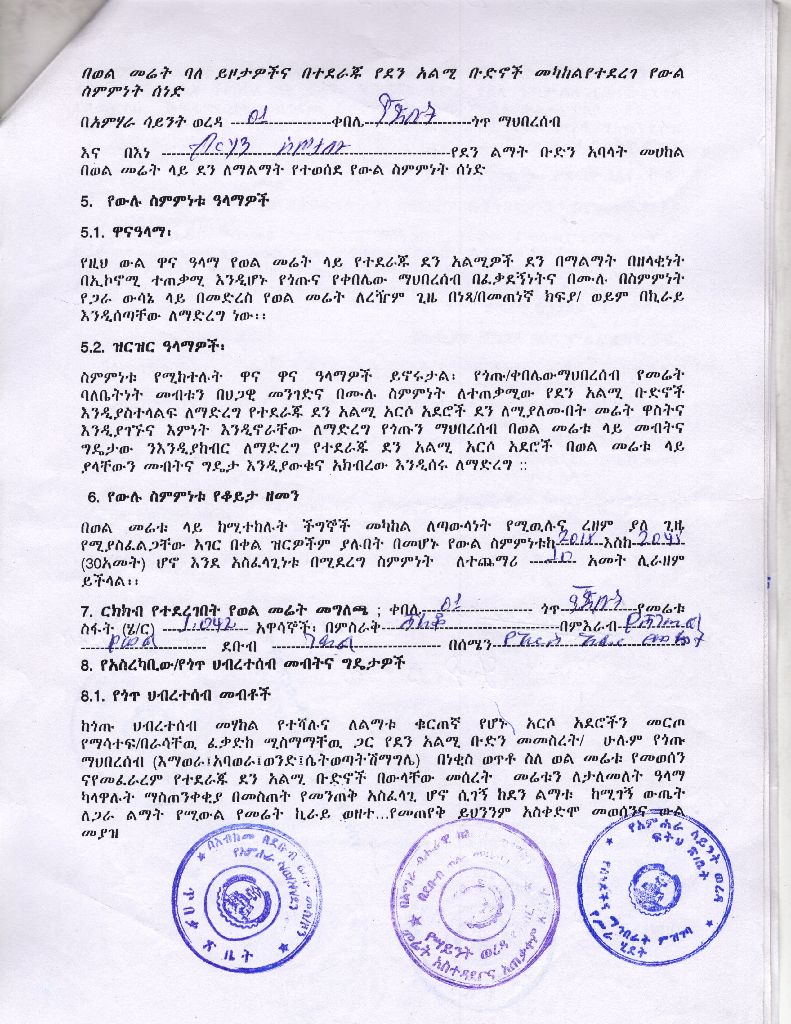 በወል መሬት ባለ ይዞታዎችና በተደራጁ የደን አልሚ ቡድኖች መካከልየተደረገ የውል
ስምምነት ሰነድ
በአምሃራ ሳይንት ወረዳ 01 ቀበሌ ጎጥ ማህበረሰብ
እና በእነ የደን ልማት ቡድን አባላት መሀከል
በወል መሬት ላይ ደን ለማልማት የተወሰደ የውል ስምምነት ሰነድ
5. የውሉ ስምምነቱ ዓላማዎች
5.1. ዋናዓላማ፡
የዚህ ውል ዋና ዓላማ የወል መሬት ላይ የተደራጁ ደን አልሚዎች ደን በማልማት በዘላቂነት
በኢኮኖሚ ተጠቃሚ እንዲሆኑ የጎጡና የቀበሌው ማህበረሰብ በፈቃደኝነትና በሙሉ በስምምነት
የጋራ ውሳኔ ላይ በመድረስ የወል መሬት ለረዥም ጊዜ በነጻ/በመጠነኛ ክፍያ/ ወይም በኪራይ
እንዲሰጣቸው ለማድረግ ነው፡፡
5.2. ዝርዝር ዓላማዎች፡
ስምምነቱ የሚከተሉት ዋና ዋና ዓላማዎች ይኖሩታል፡ የጎጡ/ቀበሌውማህበረሰብ የመሬት
ባለቤትነት መብቱን በህጋዊ መንገድና በሙሉ ስምምነት ለተጠቃሚው የደን አልሚ ቡድኖች
እንዲያስተላልፍ ለማድረግ የተደራጁ ደን አልሚ አርሶ አደሮች ደን ለሚያለሙበት መሬት ዋስትና
እንዲያገኙና እምነት እንዲኖራቸው ለማድረግ የጎጡን ማህበረሰብ በወል መሬቱ ላይ መብትና
ግዴታው ንእንዲያከብር ለማድረግ የተደራጁ ደን አልሚ አርሶ አደሮች በወል መሬቱ ላይ
ያላቸውን መብትና ግዴታ እንዲያውቁና አክብረው እንዲሰሩ ለማድረግ ::
6. የውሉ ስምምነቱ የቆይታ ዘመን
በወል መሬቱ ላይ ከሚተከሉት ችግኞች መካከል ለጣውላነት የሚዉሉና ረዘም ያለ ጊዜ
የሚያስፈልጋቸው አገር በቀል ዝርዎችም ያሉበት በመሆኑ የውል ስምምነቱከ 2018 እስከ 2048
(30አመት) ሆኖ እንደ አስፈላጊነቱ በሚደረግ ስምምነት ለተጨማሪ 10 አመት ሊራዘም
ይችላል፡፡
7. ርክክብ የተደረገበት የወል መሬት መግለጫ ; ቀበሌ 01 ጎጥ የመሬቱ
ስፋት (ሄ/ር) 1.042 አዋሳኞች፡ በምስራቅ በምእራብ
ደቡብ በሰሜን
8. የአስረካቢው/የጎጥ ህብረተሰብ መብትና ግዴታዎች
8.1. የጎጥ ህብረተሰብ መብቶች
ከጎጡ ህብረተሰብ መሃከል የተሻሉና ለልማቱ ቁርጠኛ የሆኑ አርሶ አደሮችን መርጦ
የማሳተፍ/በራሳቸዉ ፈቃድከ ሚስማማቸዉ ጋር የደን አልሚ ቡድን መመስረት/ ሁሉም የጎጡ
ማህበረሰብ (እማወራ፤አባወራ፤ወንድ፤ሴትወጣትሽማግሌ) በነቂስ ወጥቶ ስለ ወል መሬቱ የመወሰን
ናየመፈራረም የተደራጁ ደን አልሚ ቡድኖች በውላቸው መሰረት መሬቱን ለታለመለት ዓላማ
ካላዋሉት ማስጠንቀቂያ በመስጠት የመንጠቅ አስፈላጊ ሆኖ ሲገኝ ከደን ልማቱ ከሚገኝ ውጤት
ለጋራ ልማት የሚውል የመሬት ኪራይ ወዘተ...የመጠየቅ ይህንንም አስቀድሞ መወሰንና ውል
መያዝ